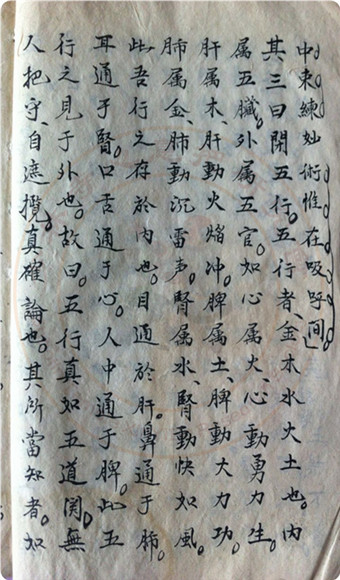 中束練妙術惟在吸呼间」
其三曰閉五行。五行者、金木水火土也。内
属五臟。外属五官。如心属火、心動勇力生。
肝属木、肝動火焰冲。脾属土、脾動大力功。
肺属金、肺動沉雷声。腎属水、腎動快如風。
此吾行之存於内也。目通於肝。鼻通于肺。
耳通于腎。口舌通于心。人中通于脾。此五
行之見于外也。故曰。五行真如五道関。無
人把守、自遮攬。真確論也。其所當知者。如